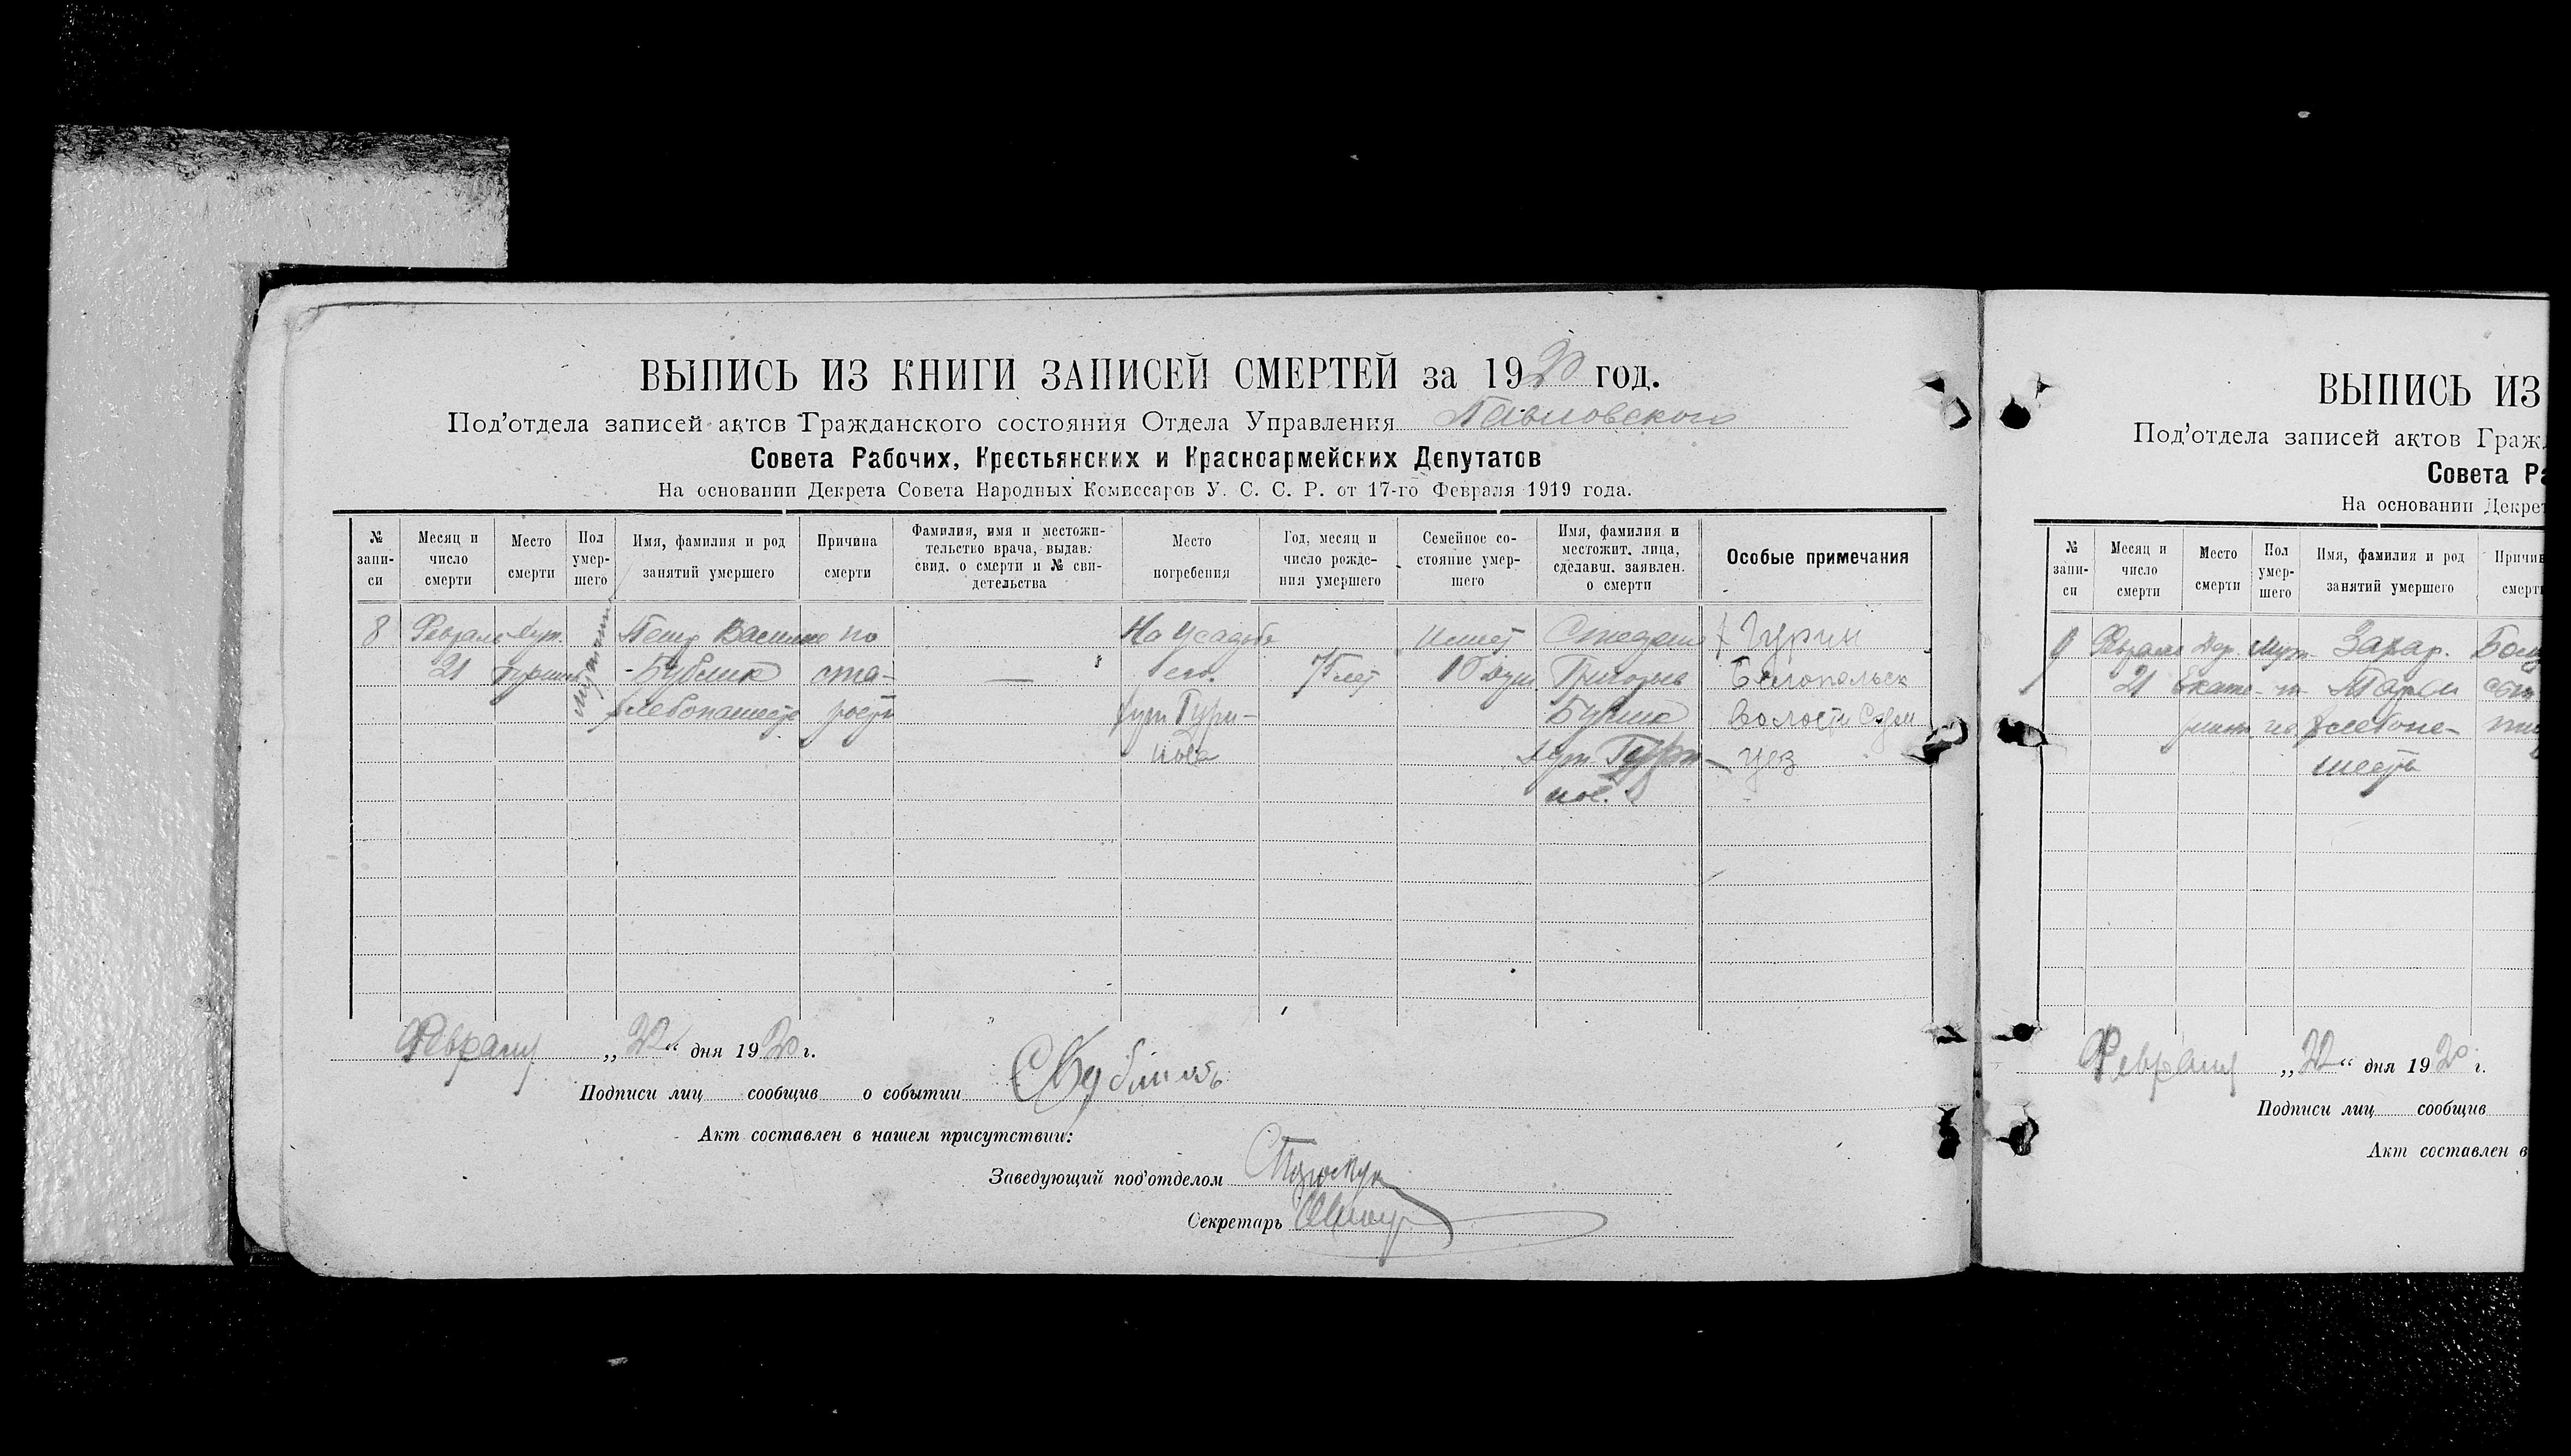 ВЫПИСЬ ИЗ КНИГИ ЗАПИСЕЙ СМЕРТЕЙ за 1920 год.
Под'отдела записей актов Гражданского состояния Отдела Управления Павловского
Совета Рабочих, Крестьянских и Красноармейских Депутатов
На основании Декрета Совета Народных Комиссаров У. С. С. Р. от 17-го Февраля 1919 года.
№ запи-си
Месяц и число смерти
Место смерти
Пол умер-шего
Имя, фамилия и род занятий умершего
Причина смерти
Фамилия, имя и местожи-тельство врача, выдав. свид. о смерти и № сви-детельства
Место погребения
Год, месяц и число рожде-ния умершего
Семейное со-стояние умер-шего
Имя, фамилия и местожит. лица, сделавш. заявлен. о смерти
Особые примечания
8
Февраля
21
Хут.
Петр
Бублик
по
ста-
рости
На Усадьбе
его.
хут Гури-
нова
75 лет
Имеет
10 душ
Григорьев
Бублик
хут
нов.
х Гурин
Белополъск
Волости Сум
уез
Февраля „22“ дня 1920 г.
Подписи лиц сообщив о событии
Акт составлен в нашем присутствии:
Заведующий под'отделом
Секретарь
ВЫПИСЬ ИЗ
Под'отдела записей актов Граж
Совета Ра
На основании Декрет
№ запи-си
Месяц и число смерти
Место смерти
Пол умер-шего
Имя, фамилия и род занятий умершего
Причин смерт
9
Февраля
21
Дер.
Екате-
Захар.
хлебопа-
шест
Февраля „22“ дня 1920 г.
Подписи лиц сообщив
Акт составлен в